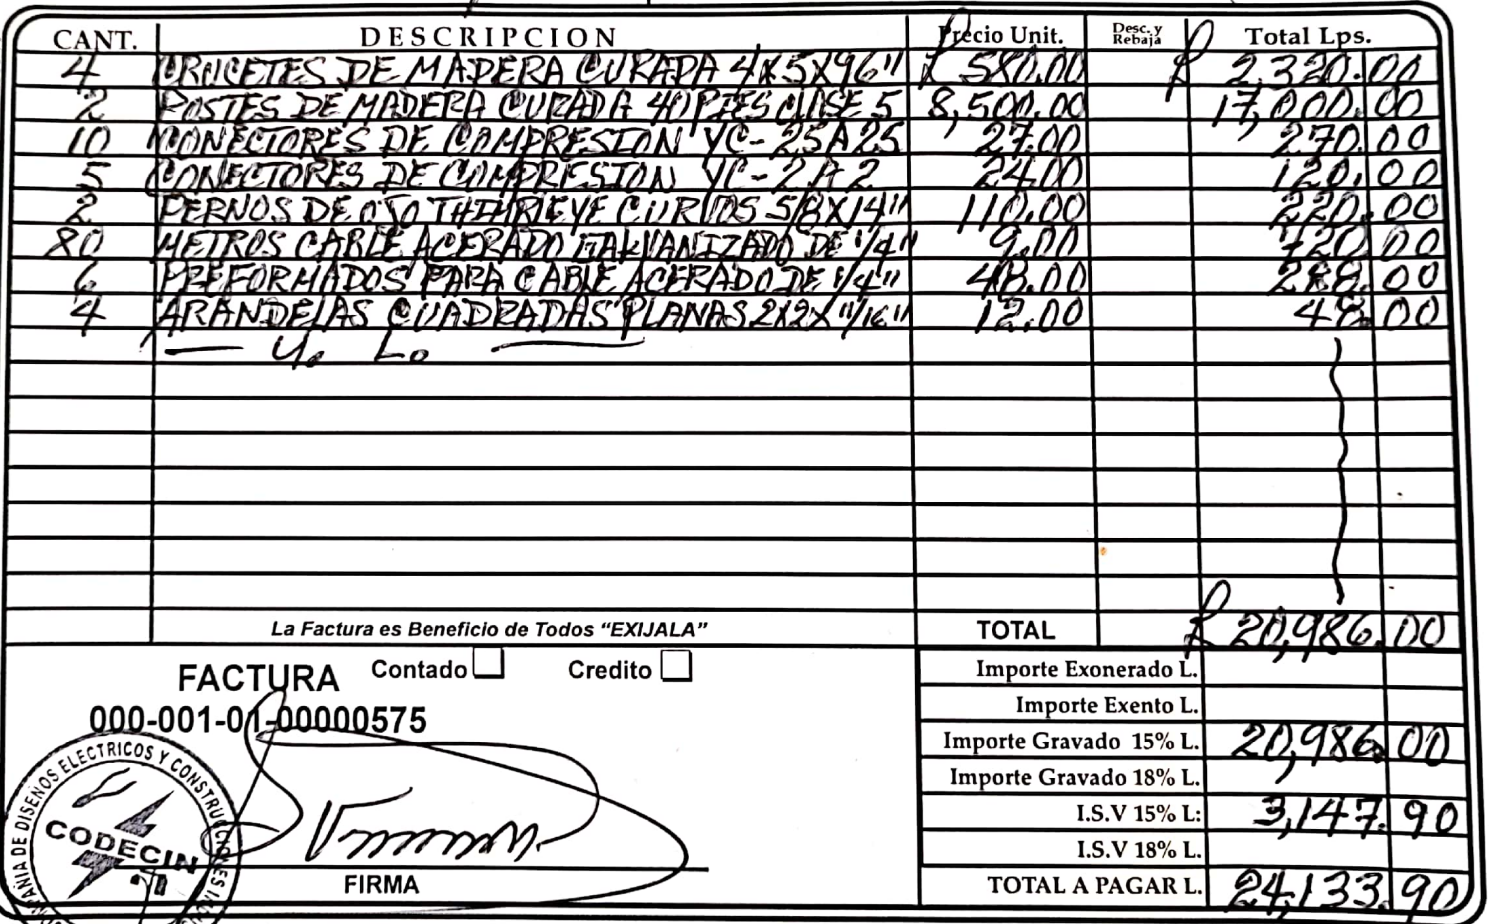 CANT. DESCRIPCION Precio Unit. Desc. y Rebaja Total Lps.
4 CRUCETES DE MADERA CURADA 4X5X96" L 580.00 L 2,320.00
2 POSTES DE MADERA CURADA 40 PIES CLASE 5 8,500.00 17,000.00
10 CONECTORES DE COMPRESION YC-25A25 27.00 270.00
5 CONECTORES DE COMPRESION YC-2A2 24.00 120.00
2 PERNOS DE OJO THIMBLEYE CURVOS 5/8X14" 110.00 220.00
80 METROS CABLE ACERADO GALVANIZADO DE 1/4" 9.00 720.00
6 PREFORMADOS PARA CABLE ACERADO DE 1/4" 48.00 288.00
4 ARANDELAS CUADRADAS PLANAS 2X2X 11/16" 12.00 48.00
— U. L. —
La Factura es Beneficio de Todos "EXIJALA" TOTAL L 20,986.00
FACTURA Contado Credito
000-001-01-00000575
Importe Exonerado L.
Importe Exento L.
Importe Gravado 15% L. 20,986.00
Importe Gravado 18% L.
I.S.V 15% L: 3,147.90
I.S.V 18% L.
TOTAL A PAGAR L. 24,133.90
COMPAÑIA DE DISEÑOS ELECTRICOS Y CONSTRUCCIONES
CODECIN
FIRMA